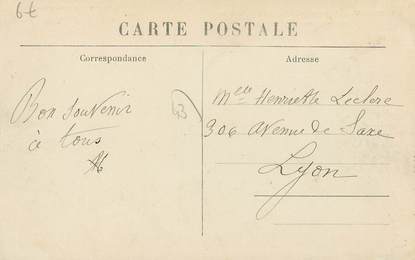 6€
CARTE POSTALE
Correspondance
Adresse
Bon Souvenir
à tous
43
Melle Henriette Leclere
306 Avenue de Saxe
Lyon